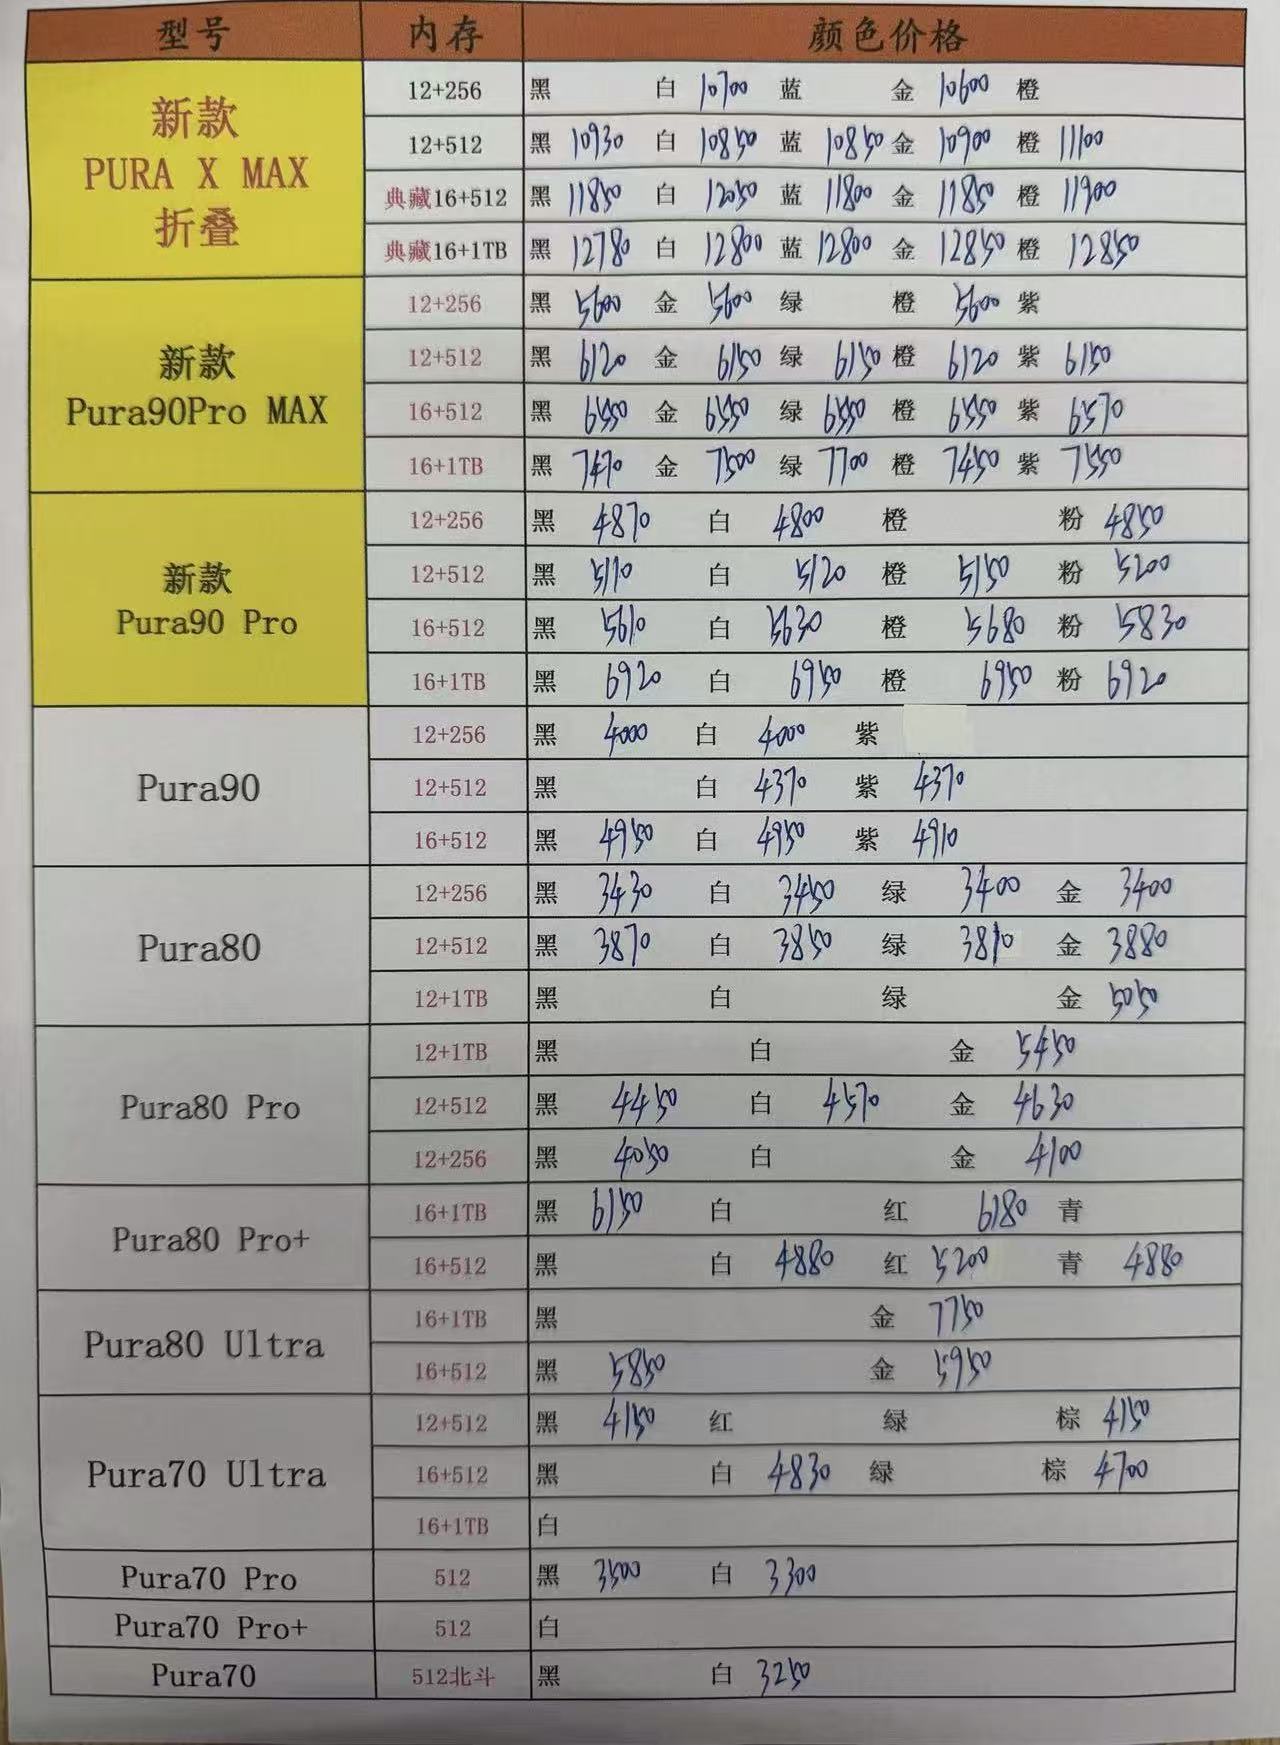 型号 内存 颜色价格
新款 PURA X MAX 折叠
12+256 黑 白 10700 蓝 金 10600 橙
12+512 黑 10930 白 10850 蓝 10850 金 10900 橙 11100
典藏16+512 黑 11850 白 12050 蓝 11800 金 11850 橙 11900
典藏16+1TB 黑 12780 白 12800 蓝 12800 金 12850 橙 12850
新款 Pura90Pro MAX
12+256 黑 5900 金 5900 绿 橙 5900 紫
12+512 黑 6120 金 6150 绿 6150 橙 6120 紫 6150
16+512 黑 6550 金 6550 绿 6550 橙 6550 紫 6570
16+1TB 黑 7470 金 7500 绿 7700 橙 7450 紫 7550
新款 Pura90 Pro
12+256 黑 4870 白 4800 橙 粉 4850
12+512 黑 5170 白 5120 橙 5150 粉 5200
16+512 黑 白 5630 橙 5680 粉 5830
16+1TB 黑 6920 白 6950 橙 6950 粉 6920
Pura90
12+256 黑 4000 白 4000 紫
12+512 黑 白 4370 紫 4370
16+512 黑 4950 白 4950 紫 4910
Pura80
12+256 黑 3430 白 3450 绿 3400 金 3400
12+512 黑 3870 白 3850 绿 金 3880
12+1TB 黑 白 绿 金 5050
Pura80 Pro
12+1TB 黑 白 金 5450
12+512 黑 4450 白 4570 金 4630
12+256 黑 4050 白 金 4100
Pura80 Pro+
16+1TB 黑 6150 白 红 6180 青
16+512 黑 白 4880 红 5200 青 4880
Pura80 Ultra
16+1TB 黑 金 7750
16+512 黑 5850 金 5950
Pura70 Ultra
12+512 黑 4150 红 绿 棕 4150
16+512 黑 白 4830 绿 棕 4700
16+1TB 白
Pura70 Pro 512 黑 3500 白 3300
Pura70 Pro+ 512 白
Pura70 512北斗 黑 白 3250